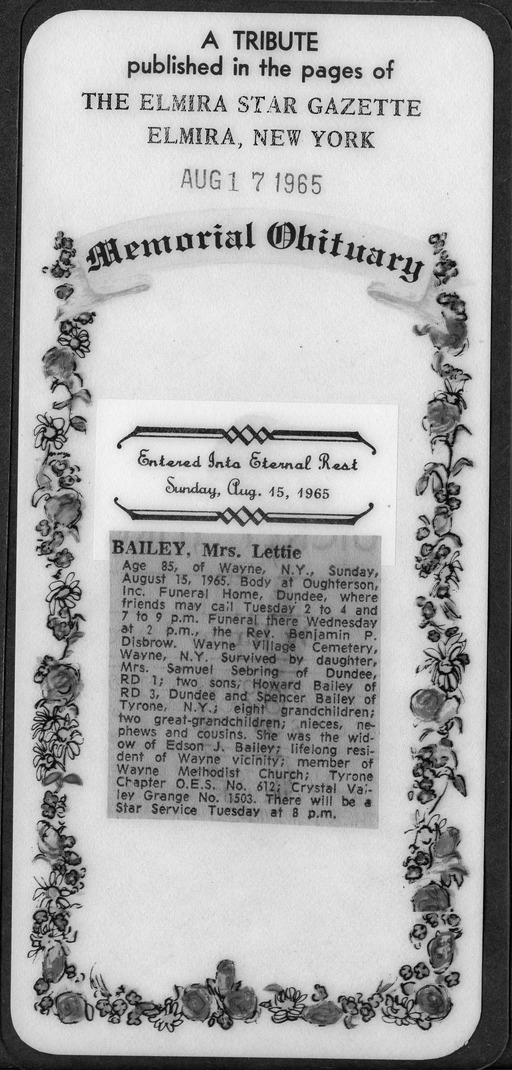 A TRIBUTE
published in the pages of
THE ELMIRA STAR GAZETTE
ELMIRA, NEW YORK
AUG 1 7 1965
Memorial Obituary
Entered Into Eternal Rest
Sunday, Aug. 15, 1965
BAILEY, Mrs. Lettie
Age 85, of Wayne, N.Y., Sunday,
August 15, 1965. Body at Oughterson,
Inc. Funeral Home, Dundee, where
friends may call Tuesday 2 to 4 and
7 to 9 p.m. Funeral there Wednesday
at 2 p.m., the Rev. Benjamin P.
Disbrow. Wayne Village Cemetery,
Wayne, N.Y. Survived by daughter,
Mrs. Samuel Sebring of Dundee,
RD 1; two sons, Howard Bailey of
RD 3, Dundee and Spencer Bailey of
Tyrone, N.Y.; eight grandchildren;
two great-grandchildren; nieces, ne-
phews and cousins. She was the wid-
ow of Edson J. Bailey; lifelong resi-
dent of Wayne vicinity; member of
Wayne Methodist Church; Tyrone
Chapter O.E.S. No. 612; Crystal Val-
ley Grange No. 1503. There will be a
Star Service Tuesday at 8 p.m.